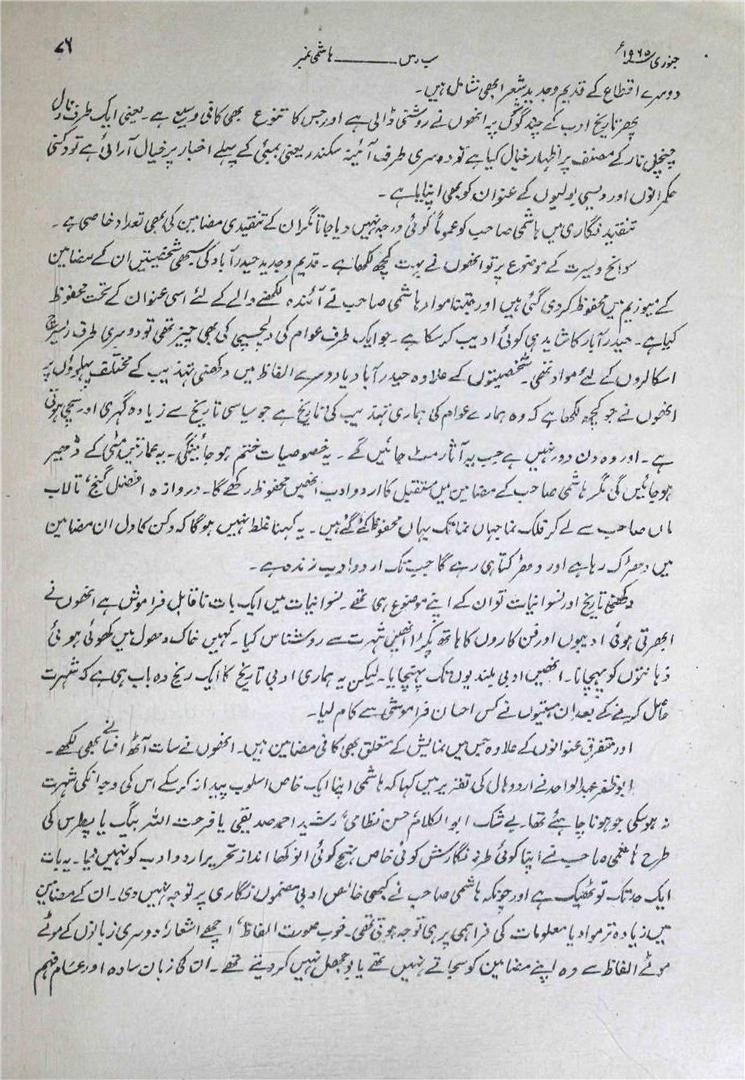 جنوری ۱۹۶۵ء سب رس ــــــ ہاشمی نمبر ۷۶
دوسرے اقطاع کے قدیم و جدید شعرا بھی شامل ہیں۔
پھر تاریخ ادب کے چند گوشوں پہ انھوں نے روشنی ڈالی ہے اور جس کا تنوع بھی کافی وسیع ہے۔ یعنی ایک طرف
چنچل نار کے مصنف پر اظہار خیال کیا ہے تو دوسری طرف آئینۂ سکندر یعنی بمبئی کے پہلے اخبار پر خیال آرائی ہے تو دکنی
حکمرانوں اور دیسی بولیوں کے عنوان کو بھی اپنایا ہے۔
تنقید نگاری میں ہاشمی صاحب کو عموماً کوئی درجہ نہیں دیا جاتا مگر ان کے تنقیدی مضامین کی بھی تعداد خاصی ہے۔
سوانح و سیرت کے موضوع پر تو انھوں نے بہت کچھ لکھا ہے۔ قدیم و جدید حیدرآباد کی سبھی شخصیتیں ان کے مضامین
کے میوزیم میں محفوظ کر دی گئی ہیں اور جتنا مواد ہاشمی صاحب نے آئندہ لکھنے والے کے لئے اسی عنوان کے تحت محفوظ
کیا ہے۔ حیدرآباد کا شاید ہی کوئی ادیب کر سکا ہے۔ جو ایک طرف عوام کی دلچسپی کی بھی چیز تھی تو دوسری طرف ریسرچ
اسکالروں کے لئے مواد تھی۔ شخصیتوں کے علاوہ حیدرآباد یا دوسرے الفاظ میں دکھنی تہذیب کے مختلف پہلوؤں پر
انھوں نے جو کچھ لکھا ہے کہ وہ ہمارے عوام کی ہماری تہذیب کی تاریخ ہے جو سیاسی تاریخ سے زیادہ گہری اور سچی ہوتی
ہے۔ اور وہ دن دور نہیں ہے جب یہ آثار مٹ جائیں گے۔ یہ خصوصیات ختم ہو جائینگی۔ یہ عمارتیں مٹی کے ڈھیر
ہو جائیں گی مگر ہاشمی صاحب کے مضامین میں مستقبل کا اردو ادب انھیں محفوظ رکھے گا۔ دروازہ افضل گنج، تالاب
ماں صاحب سے لے کر فلک نما جہاں نما تک یہاں محفوظ کئے گئے ہیں۔ یہ کہنا غلط نہیں ہو گا کہ دکن کا دل ان مضامین
میں دھڑک رہا ہے اور دھڑکتا ہی رہے گا جب تک اردو ادب زندہ ہے۔
دکھنی تاریخ اور نسوانیات تو ان کے اپنے موضوع ہی تھے۔ نسوانیات میں ایک بات ناقابل فراموش ہے انھوں نے
ابھرتی ہوئی ادیبوں اور فن کاروں کا ہاتھ پکڑ انھیں شہرت سے روشناس کیا۔ کہیں خاک دھول میں کھوئی ہوئی
ذہانتوں کو پہچانا۔ انھیں ادبی بلندیوں تک پہنچایا۔ لیکن یہ ہماری ادبی تاریخ کا ایک رنج دہ باب ہی ہے کہ شہرت
حاصل کرنے کے بعد ان ہستیوں نے کس احسان فراموشی سے کام لیا۔
اور متفرق عنوانوں کے علاوہ جس میں نمایش کے متعلق بھی کافی مضامین ہیں۔ انھوں نے سات آٹھ افسانے بھی لکھے۔
ابو ظفر عبدالواحد نے اردو ہال کی تقریر میں کہا کہ ہاشمی اپنا ایک خاص اسلوب پیدا نہ کر سکے اس کی وجہ انکی شہرت
نہ ہو سکی جو ہونا چاہئے تھا۔ بے شک ابوالکلام، حسن نظامی، رشید احمد صدیقی یا فرحت اللہ بیگ یا پطرس کی
طرح ہاشمی صاحب نے اپنا کوئی طرز نگارش کوئی خاص نہج کوئی انوکھا انداز تحریر اردو ادب کو نہیں دیا۔ یہ بات
ایک حد تک تو ٹھیک ہے اور چونکہ ہاشمی صاحب نے کبھی خالص ادبی مضمون نگاری پر توجہ نہیں دی۔ ان کے مضامین
میں زیادہ تر مواد یا معلومات کی فراہمی پر ہی توجہ ہوتی تھی۔ خوب صورت الفاظ، اچھے اشعار، دوسری زبانوں کے موٹے
موٹے الفاظ سے وہ اپنے مضامین کو سجاتے نہیں تھے یا بوجھل نہیں کر دیتے تھے۔ ان کی زبان سادہ اور عام فہم